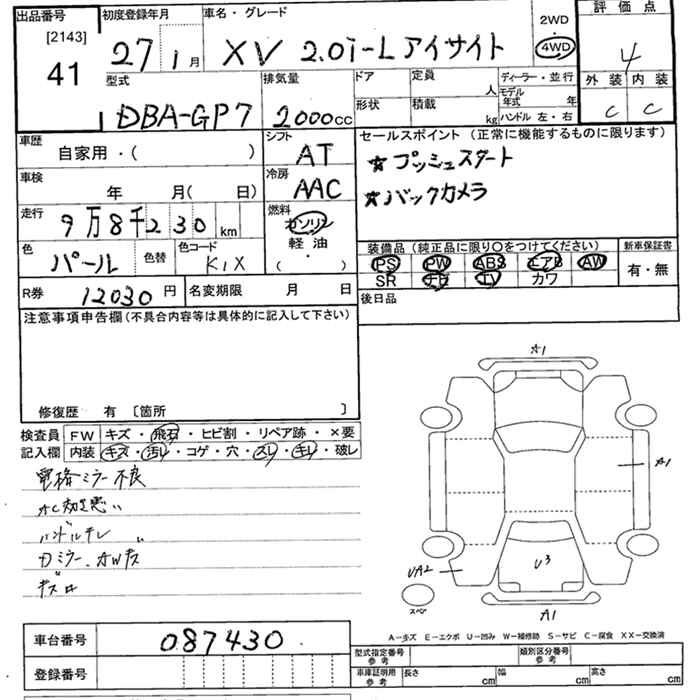 出品番号 初度登録年月 車名・グレード 2WD 評価点
[2143] 27 1月 XV 2.0i-L アイサイト 4WD 4
41 型式 排気量 ドア 定員 ディーラー・並行 外装 内装
人 モデル年式 年
DBA-GP7 2000cc 形状 積載 kg ハンドル 左・右 C C
車歴 シフト セールスポイント (正常に機能するものに限ります)
自家用・( ) AT ☆プッシュスタート
車検 冷房
年 月( 日) AAC ☆バックカメラ
走行 燃料
9万8千230 km ガソリン
色 色替 色コード 軽油 装備品(純正品に限り○をつけてください) 新車保証書
パール K1X ・ PS PW ABS エアB AW 有・無
( ) SR ナビ TV カワ
R券 12030円 名変期限 月 日 後日品
注意事項申告欄(不具合内容等は具体的に記入して下さい)
修復歴 有 [箇所 ]
検査員 FW キズ・飛石・ヒビ割・リペア跡・×要
記入欄 内装 キズ・汚レ・コゲ・穴・スレ・キレ・破レ
電格ミラー不良
AC効き悪い
ハンドルキレ
カミラー、AWキズ
A1
A1
U3
UA2
スペア
A1
A-キズ E-エクボ U-凹み W-補修跡 S-サビ C-腐食 XX-交換済
車台番号 087430
登録番号
型式指定番号 参考 類別区分番号 参考
車庫証明用 参考 長さ cm 幅 cm 高さ cm